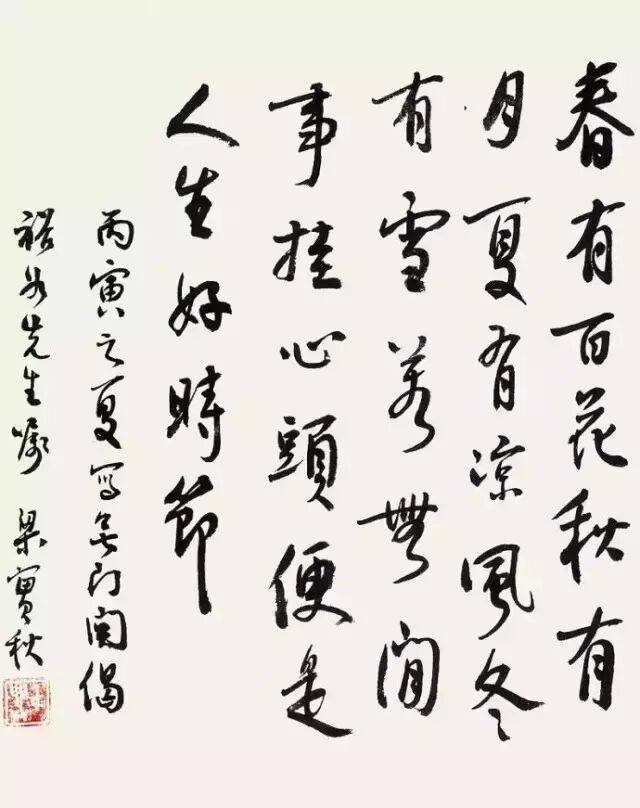 春有百花秋有
月夏有凉風冬
有雪若無閒
事挂心頭便是
人生好時節
丙寅之夏写無门関偈
裕先生嘱 梁實秋